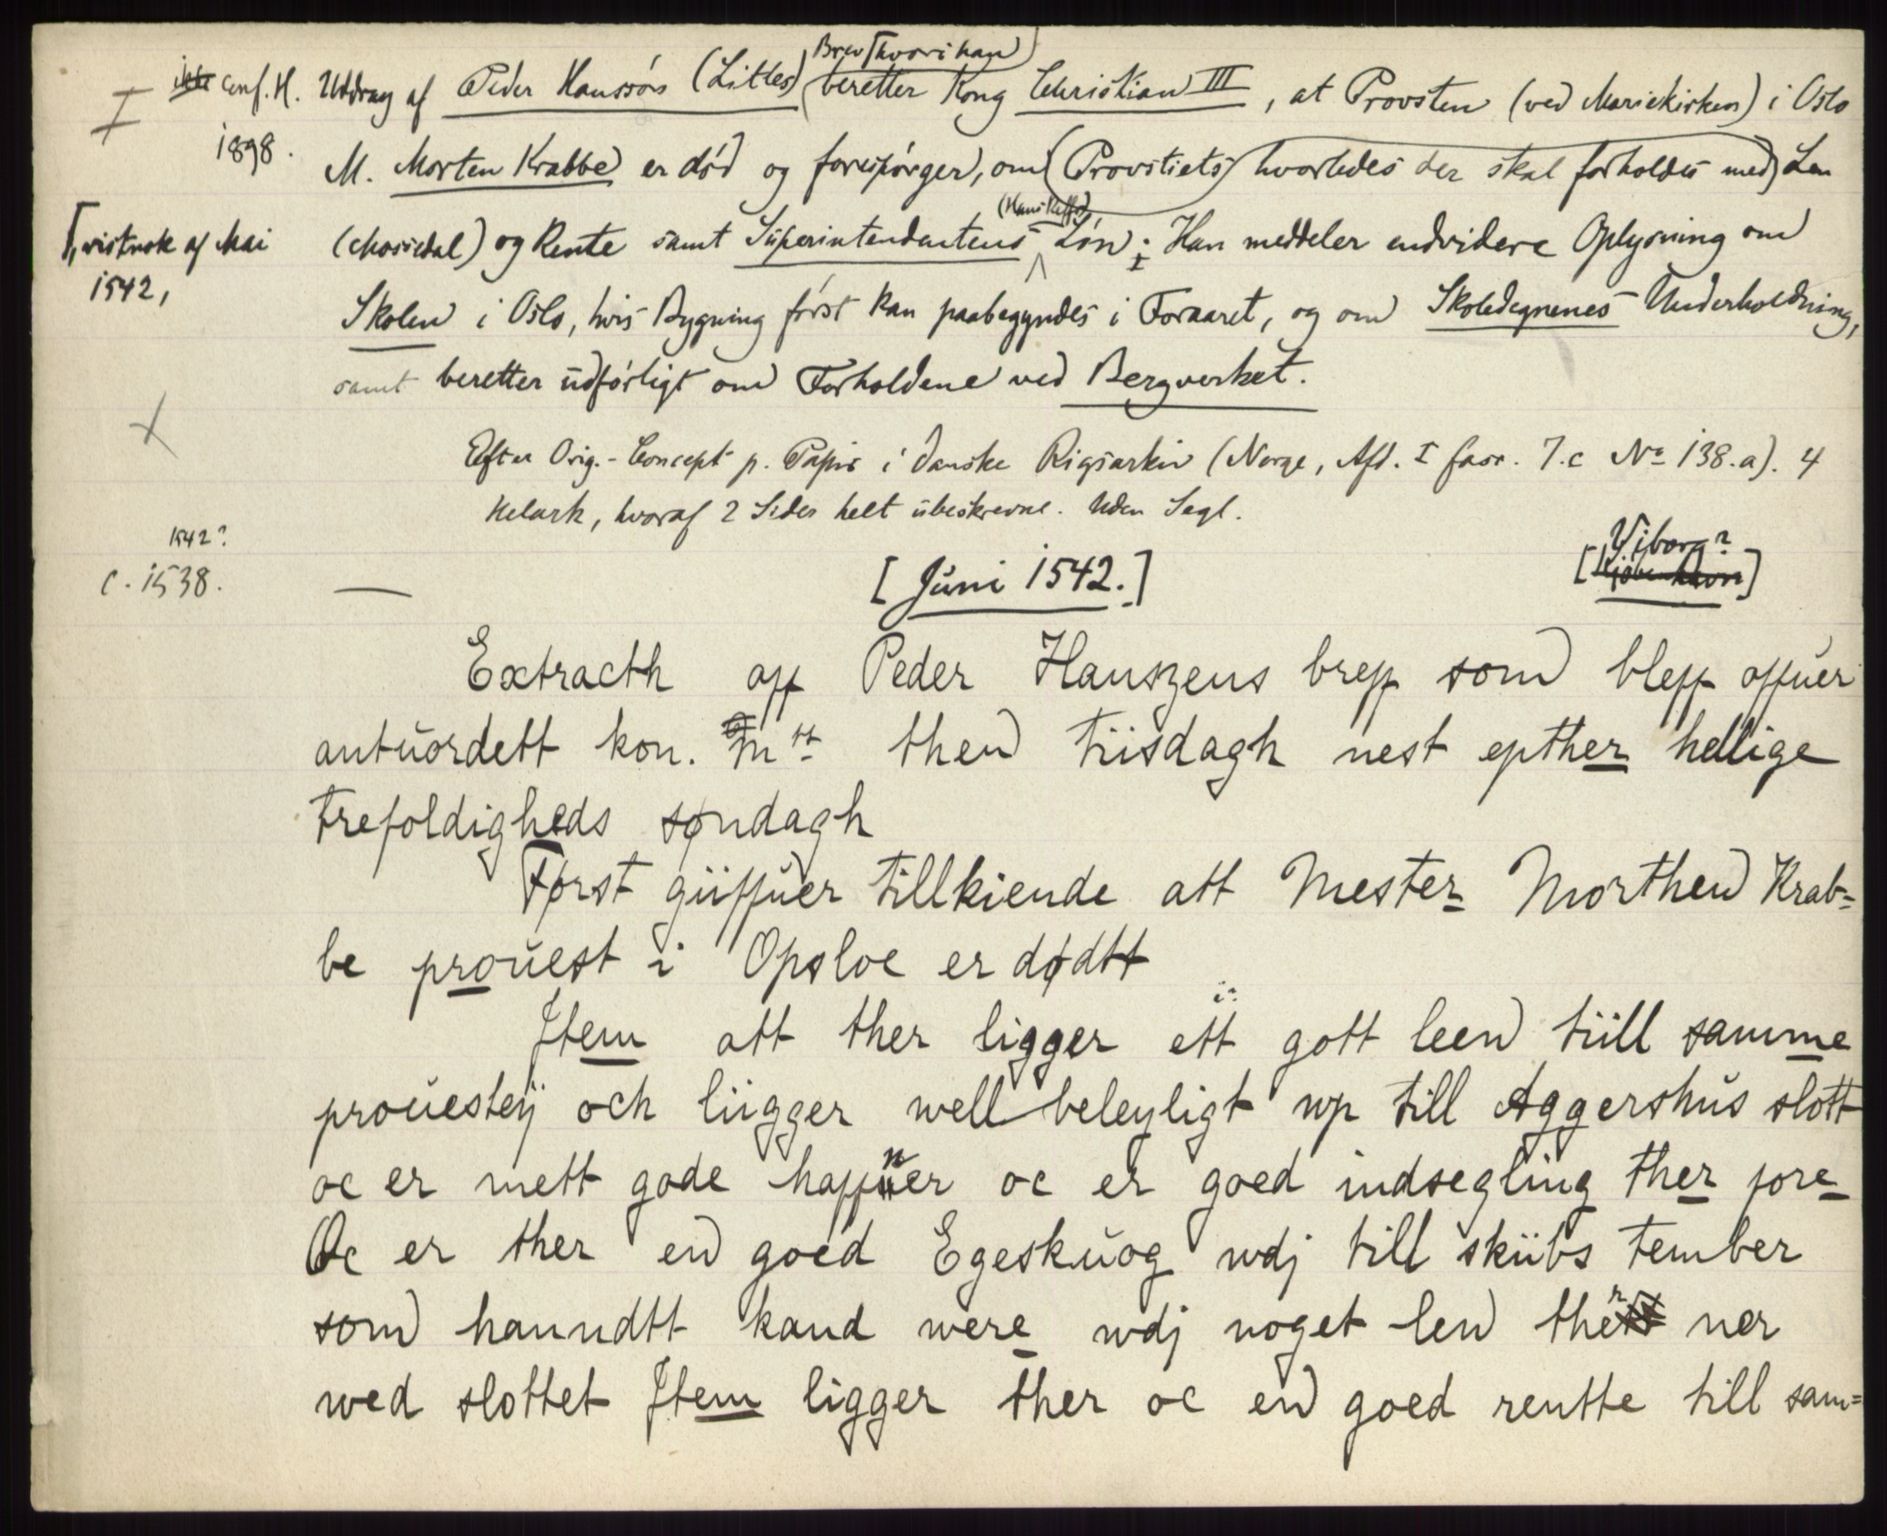 I conf. H. 1898.
Uddrag af Peder Hanssøns (Litles) Brev, hvori han beretter Kong Christian III, at Provsten (ved Mariekirken) i Oslo
M. Morten Krabbe er død og forespørger, om hvorledes der skal forholdes med Provstiets Len
(Mossedal) og Rente samt Superintendentens (Hans Reffs) Løn; Han meddeler endvidere Oplysning om
Skolen i Oslo, hvis Bygning først kan paabegyndes i Foraaret, og om Skoledegnenes Underholdning,
samt beretter udførligt om Forholdene ved Bergverket.
, vistnok af Mai
1542,
Efter Orig.-Concept p. Papir i danske Rigsarkiv (Norge, Afd. I fasc. 7.c No 138.a). 4
Helark, hvoraf 2 Sider helt ubeskrevne. Uden Segl.
1542?
c. 1538.
— [Juni 1542.] [Viborg?]
Extracth aff Peder Hanszens breff som bleff offuer
antuordett kon. Mtt then tiisdagh nest epther hellige
trefoldigheds søndagh
Først giiffuer tillkiende att Mester Morthen Krab=
be prouest i Opsloe er dødtt
Item att ther ligger ett gott leen tiill samme
prouesterij och liigger well beleyligt wp till Aggershus slott
oc er mett gode haffner oc er goed indsegling ther fore
Oc er ther en goed Egeskuog wdj till skiibs tember
som hanndtt kand were wdj noget len ther ner
wed slottet Item ligger ther oc en goed rentte till sam=